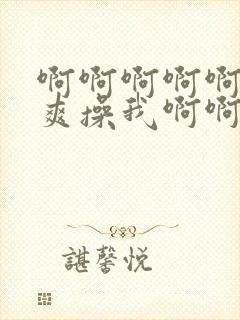 啊啊啊啊啊
爽操我啊啊
諶馨悦